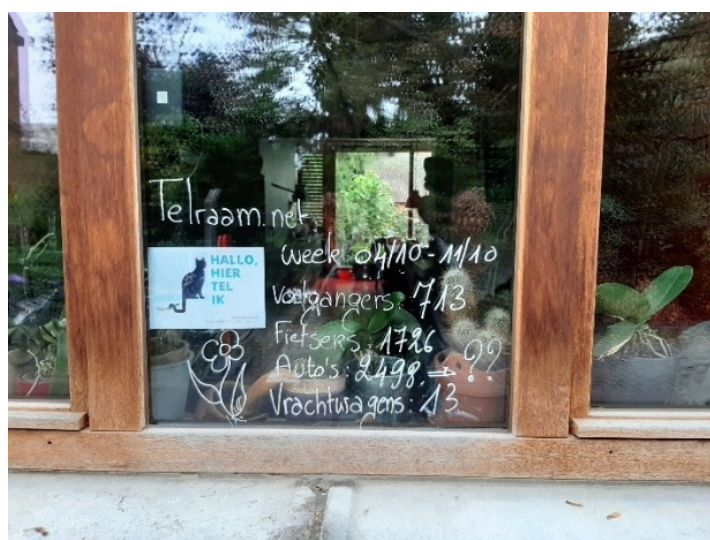 Telraam.net
HALLO,
HIER
TEL
IK
Week 04/10 - 11/10
Voetgangers: 713
Fietsers: 1726
Auto's: 2498. → ??
Vrachtwagens: 13.